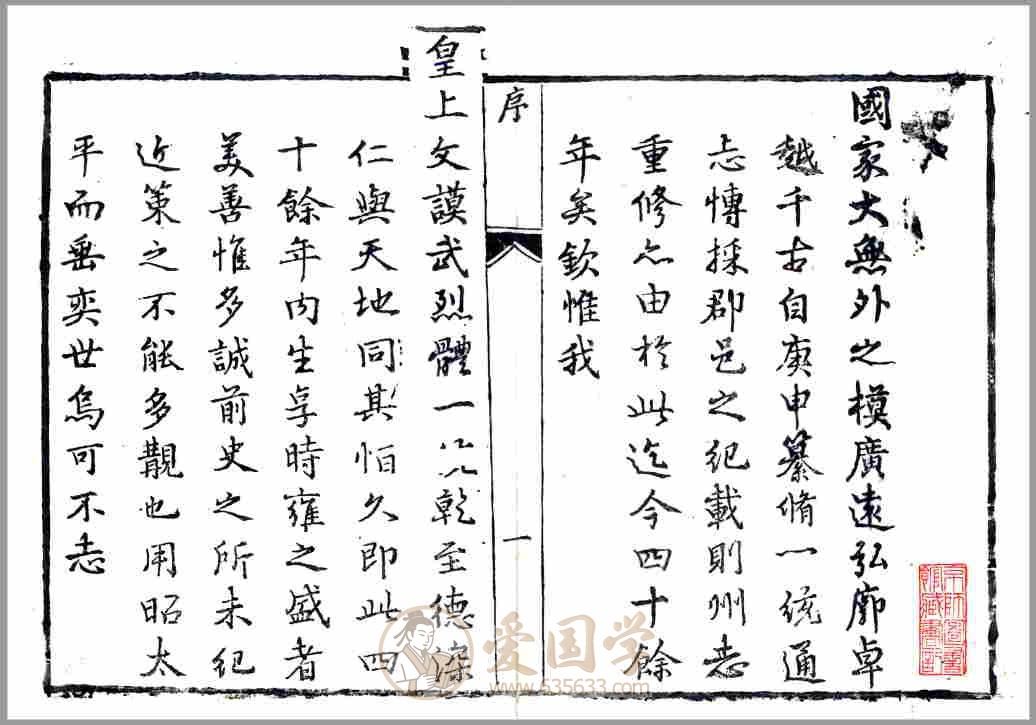 國家大無外之模廣遠弘廓卓
越千古自庚申纂脩一統通
志愽採郡邑之紀載則州志
重修亦由於此迄今四十餘
年矣欽惟我
序
一
皇上文謨武烈體一乾至德深
仁與天地同其恒久即此四
十餘年內生享時雍之盛者
美善惟多誠前史之所未紀
近策之不能多覯也用昭太
平而垂奕世烏可不志
京師圖書
館藏書記
爱国学
www.535633.com